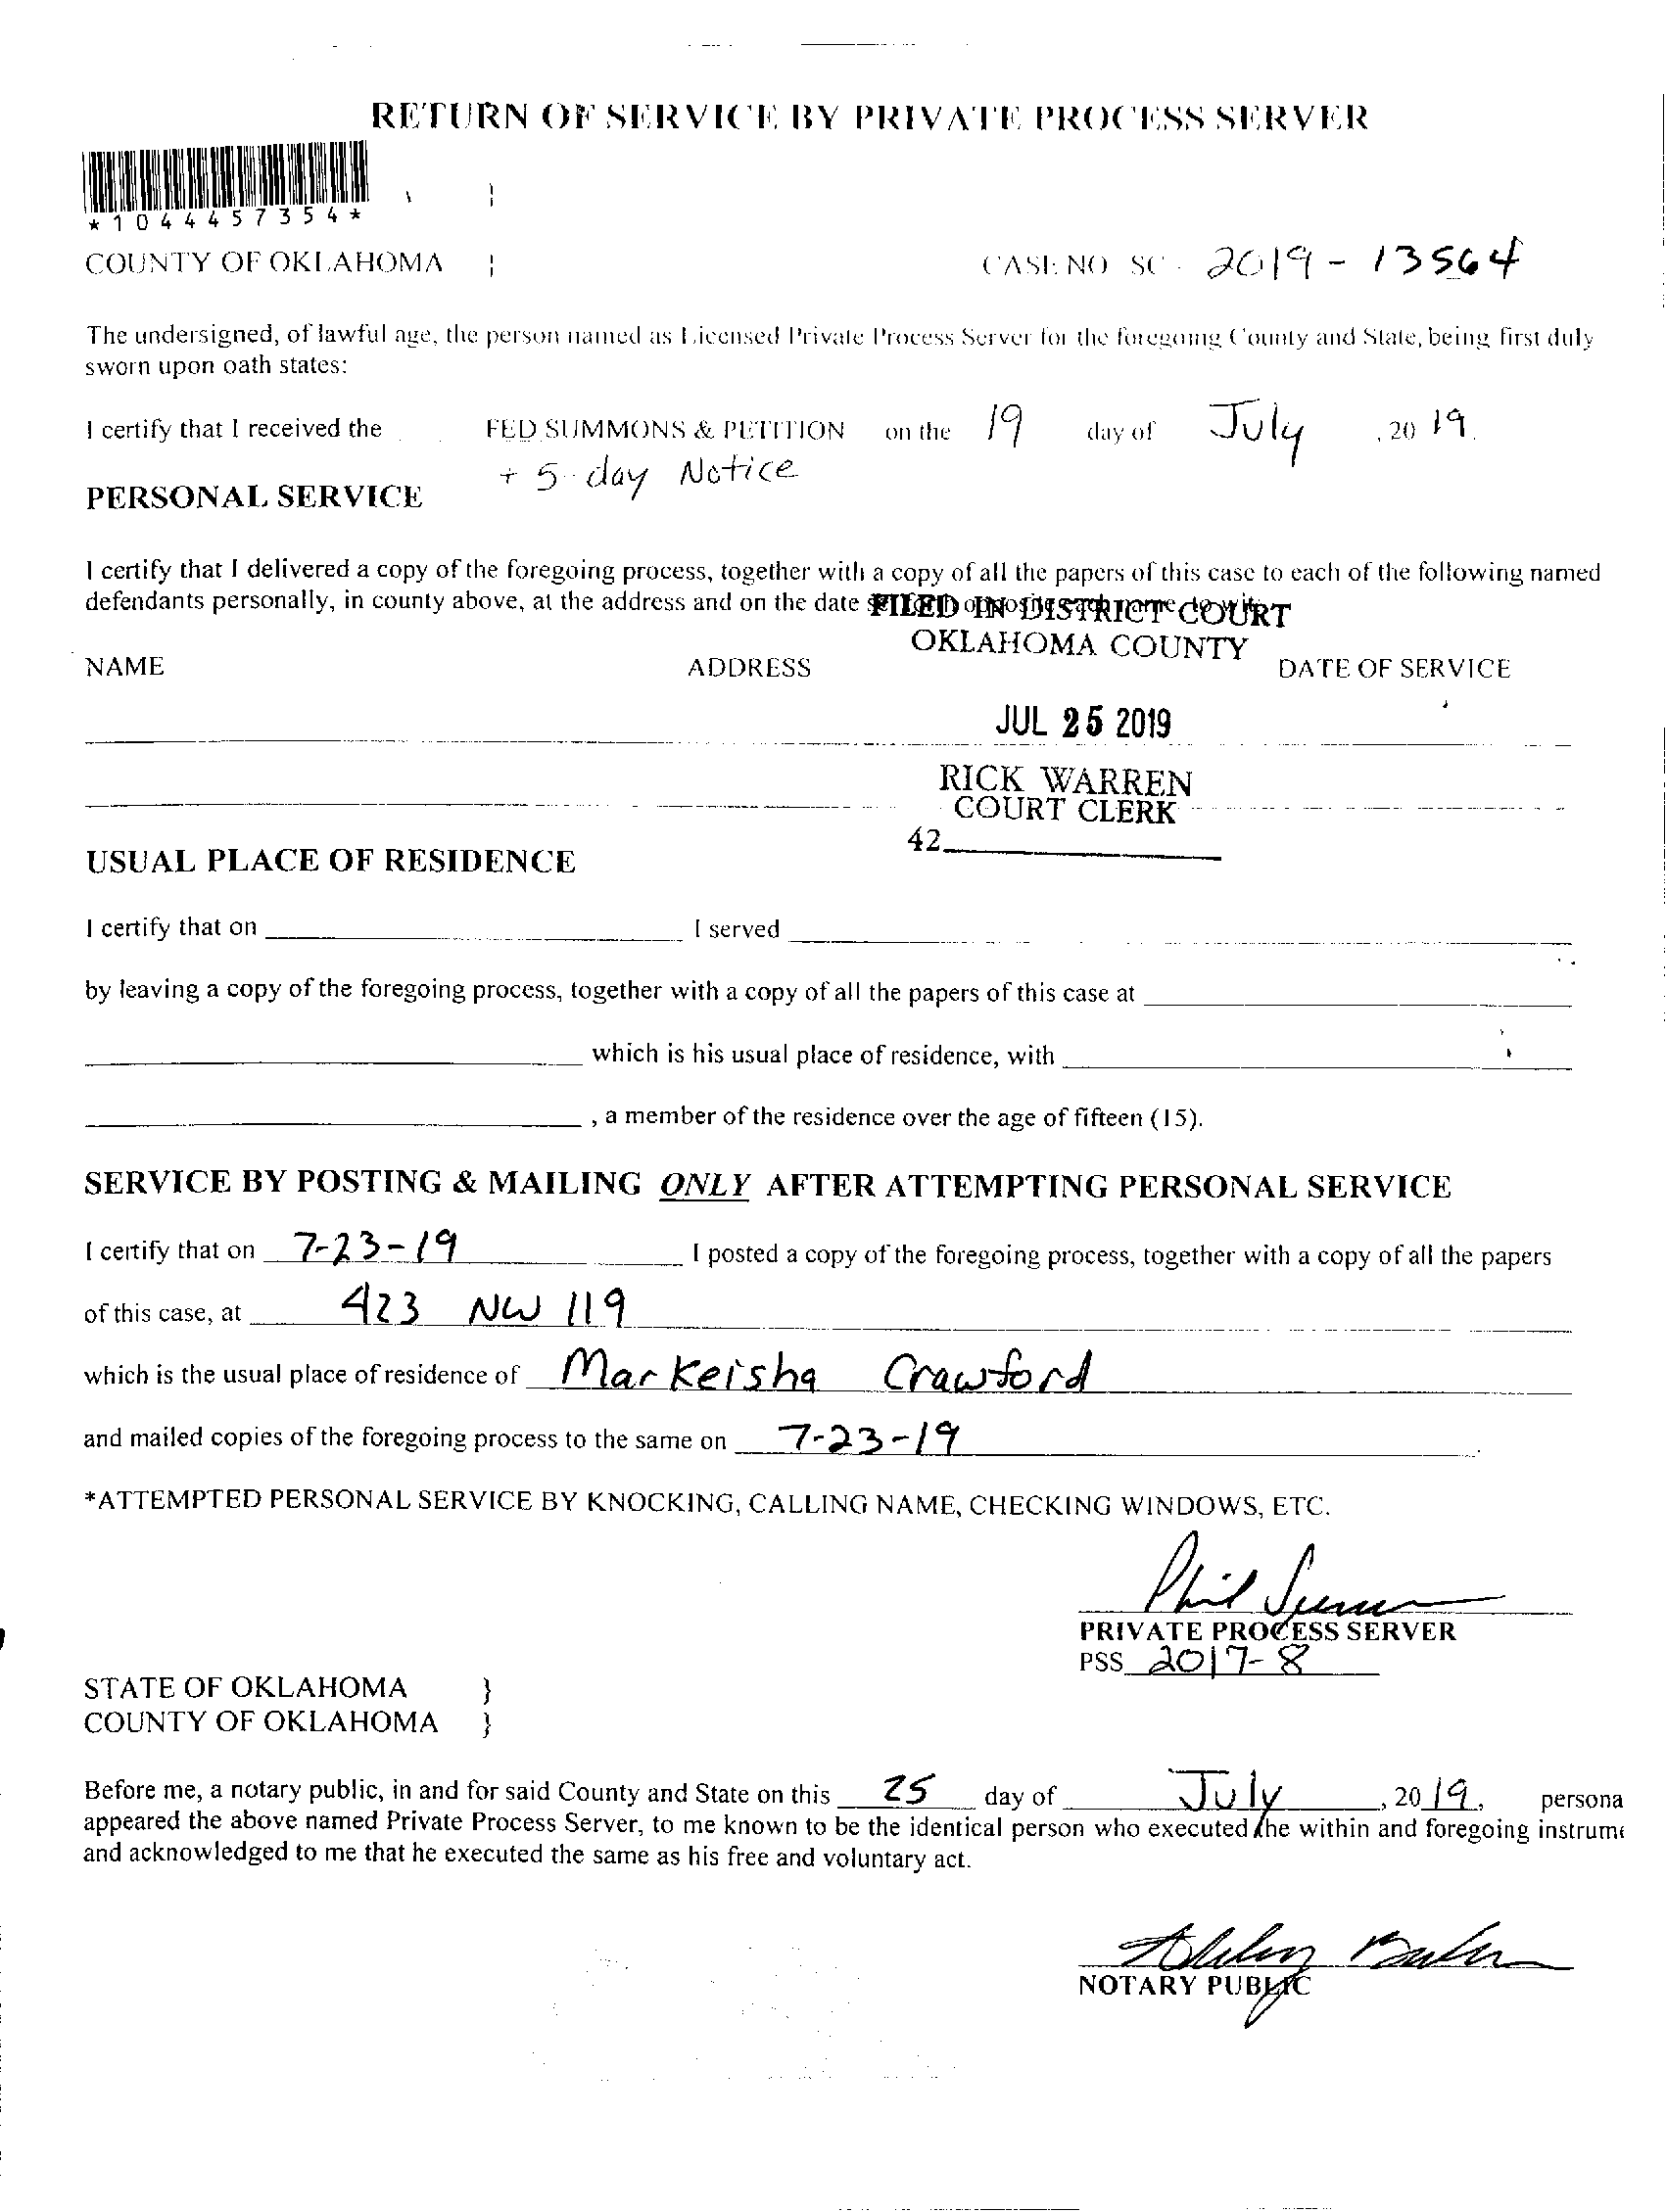 RETURN OF SERVICE BY PRIVATE PROCESS SERVER
*1044457354*
COUNTY OF OKLAHOMA }
CASE NO SC - 2019 - 13564
The undersigned, of lawful age, the person named as Licensed Private Process Server for the foregoing County and State, being first duly
sworn upon oath states:
I certify that I received the FED SUMMONS & PETITION on the 19 day of July , 20 19.
+ 5-day Notice
PERSONAL SERVICE
I certify that I delivered a copy of the foregoing process, together with a copy of all the papers of this case to each of the following named
defendants personally, in county above, at the address and on the date set forth opposite each name, to wit:
FILED IN DISTRICT COURT
OKLAHOMA COUNTY
NAME ADDRESS DATE OF SERVICE
JUL 25 2019
RICK WARREN
COURT CLERK
42
USUAL PLACE OF RESIDENCE
I certify that on I served
by leaving a copy of the foregoing process, together with a copy of all the papers of this case at
which is his usual place of residence, with
, a member of the residence over the age of fifteen (15).
SERVICE BY POSTING & MAILING ONLY AFTER ATTEMPTING PERSONAL SERVICE
I certify that on 7-23-19 I posted a copy of the foregoing process, together with a copy of all the papers
of this case, at 423 NW 119
which is the usual place of residence of Markeisha Crawford
and mailed copies of the foregoing process to the same on 7-23-19.
*ATTEMPTED PERSONAL SERVICE BY KNOCKING, CALLING NAME, CHECKING WINDOWS, ETC.
Phil
PRIVATE PROCESS SERVER
PSS 2017-8
STATE OF OKLAHOMA }
COUNTY OF OKLAHOMA }
Before me, a notary public, in and for said County and State on this 25 day of July , 20 19, persona
appeared the above named Private Process Server, to me known to be the identical person who executed the within and foregoing instrume
and acknowledged to me that he executed the same as his free and voluntary act.
NOTARY PUBLIC